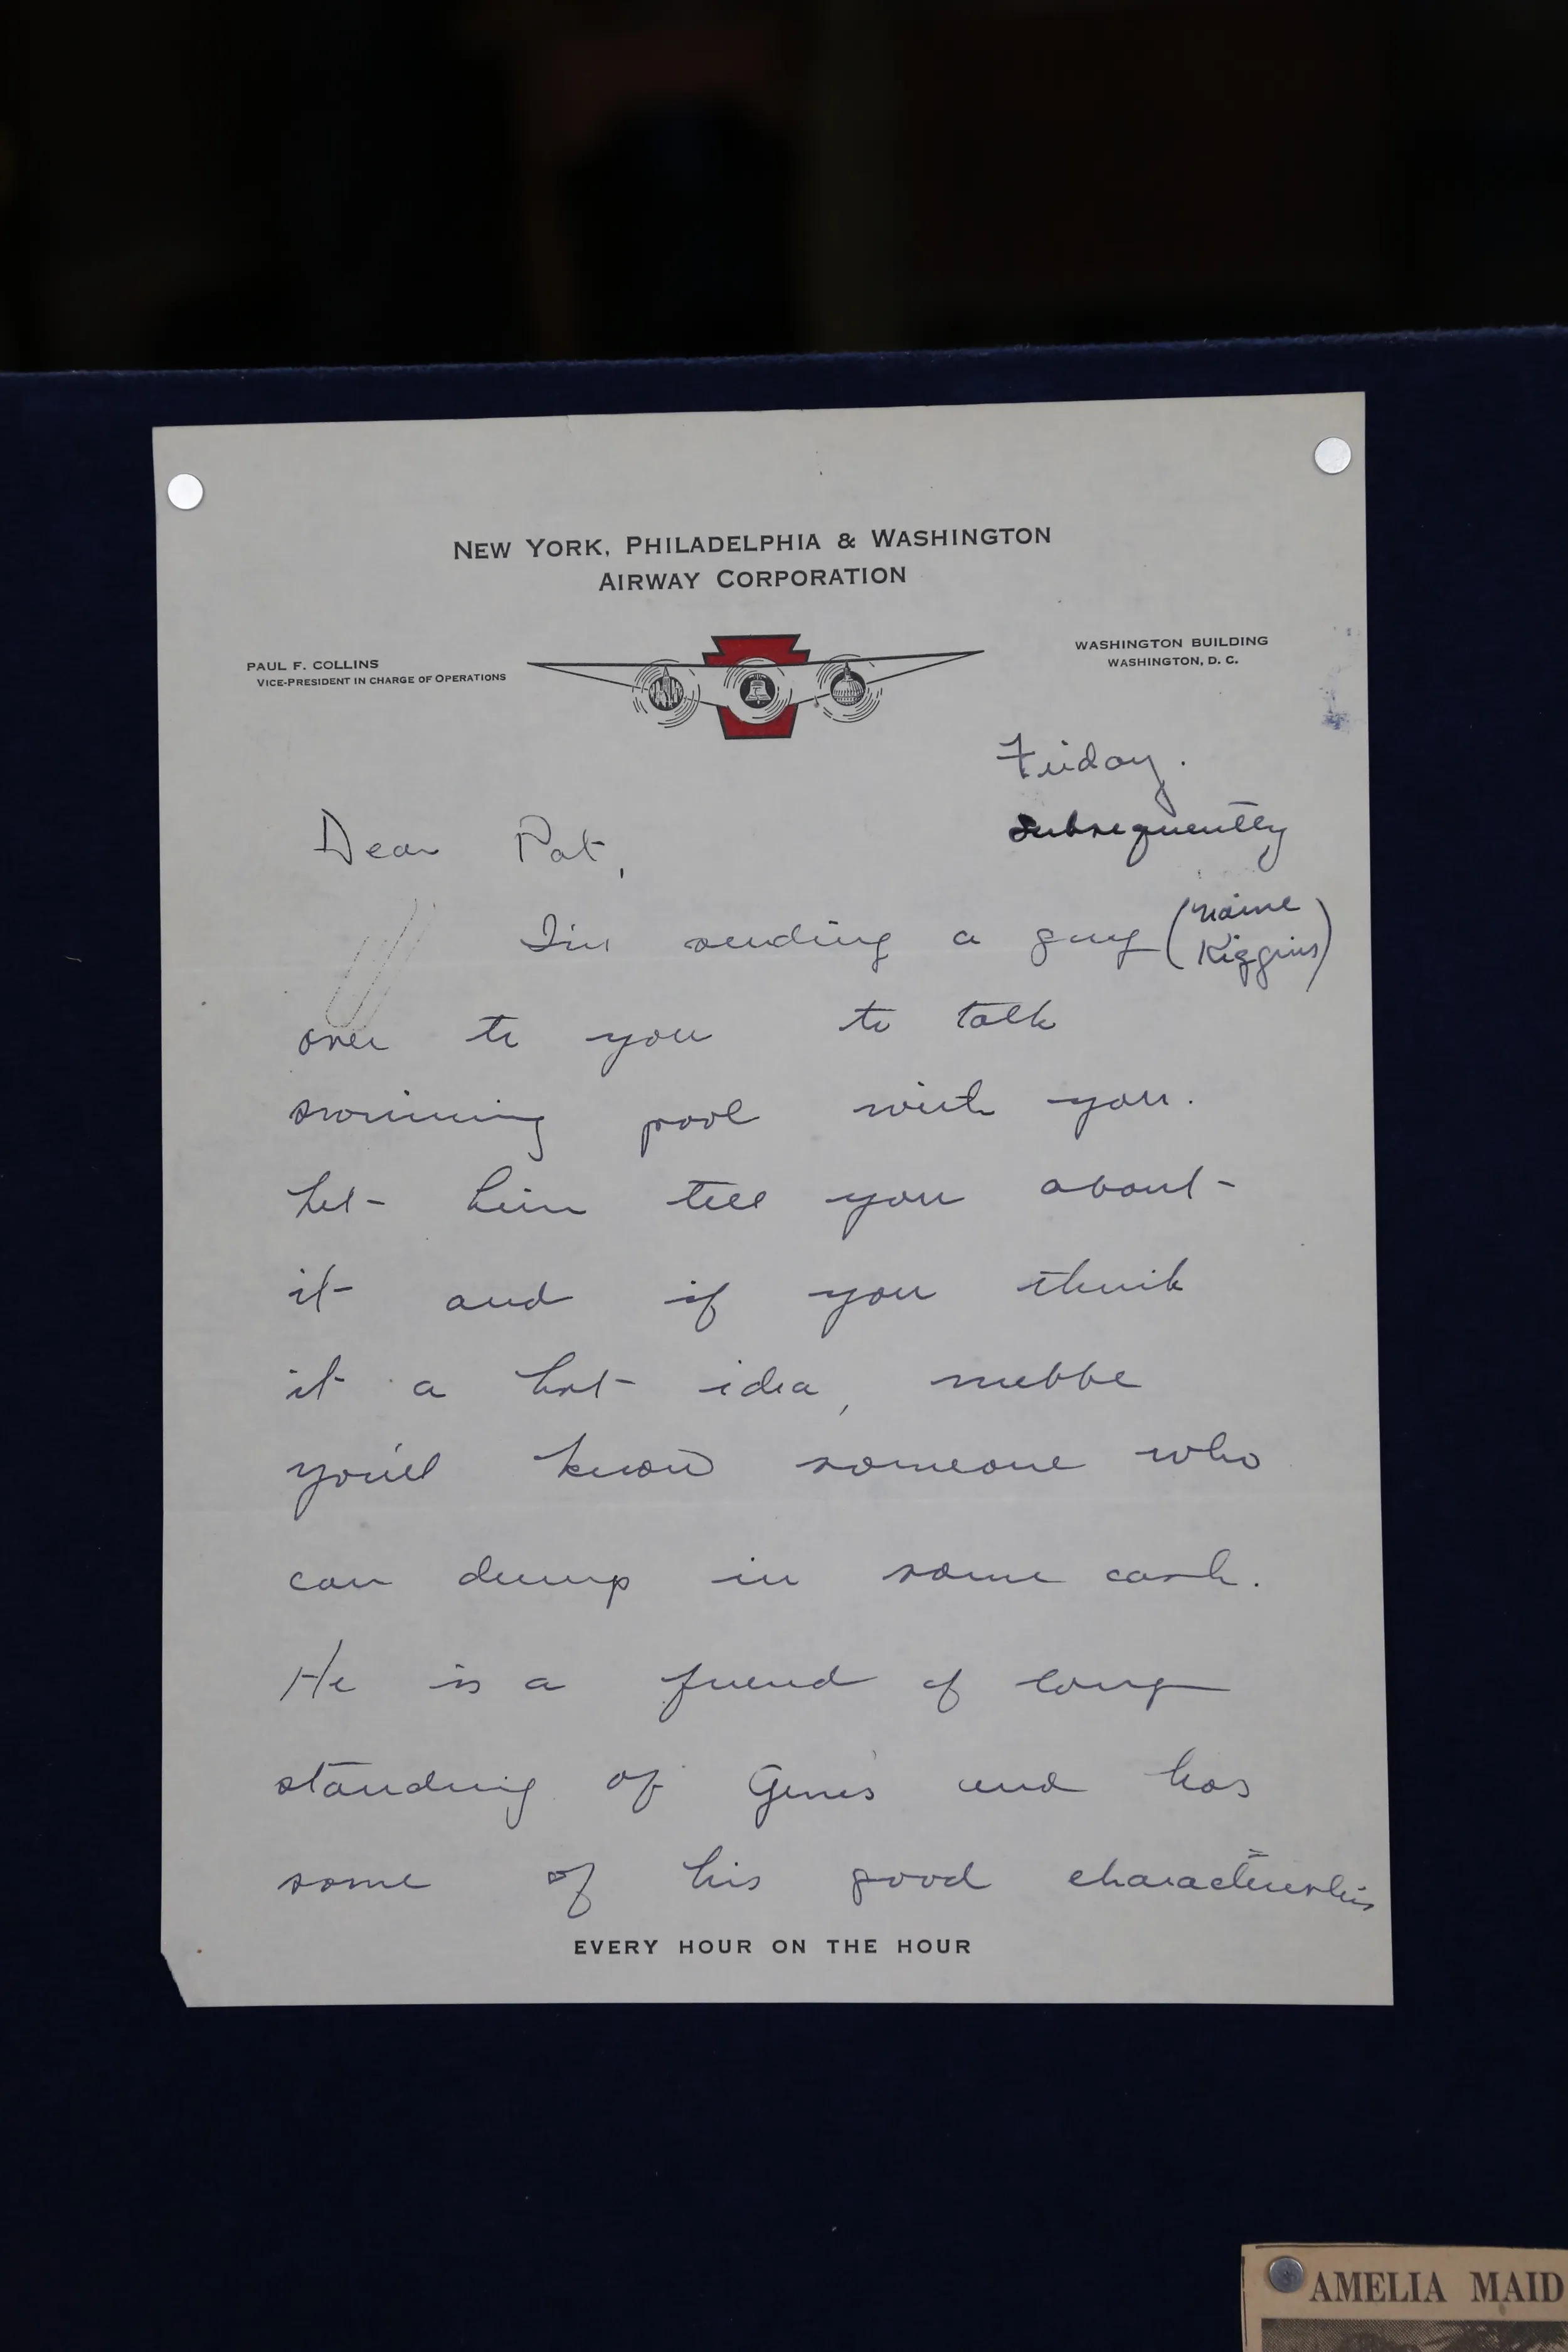 NEW YORK, PHILADELPHIA & WASHINGTON
AIRWAY CORPORATION
PAUL F. COLLINS
VICE-PRESIDENT IN CHARGE OF OPERATIONS
WASHINGTON BUILDING
WASHINGTON, D. C.
Friday.
Dear Pat,
subsequently
I'm sending a guy (name
Kiggins)
over to you to talk
swimming pool with you.
Let him tell you about
it and if you think
it a hot idea, mebbe
you'll know someone who
can dump in some cash.
He is a friend of long
standing of Gene's and has
some of his good characteristics
EVERY HOUR ON THE HOUR
AMELIA MAID